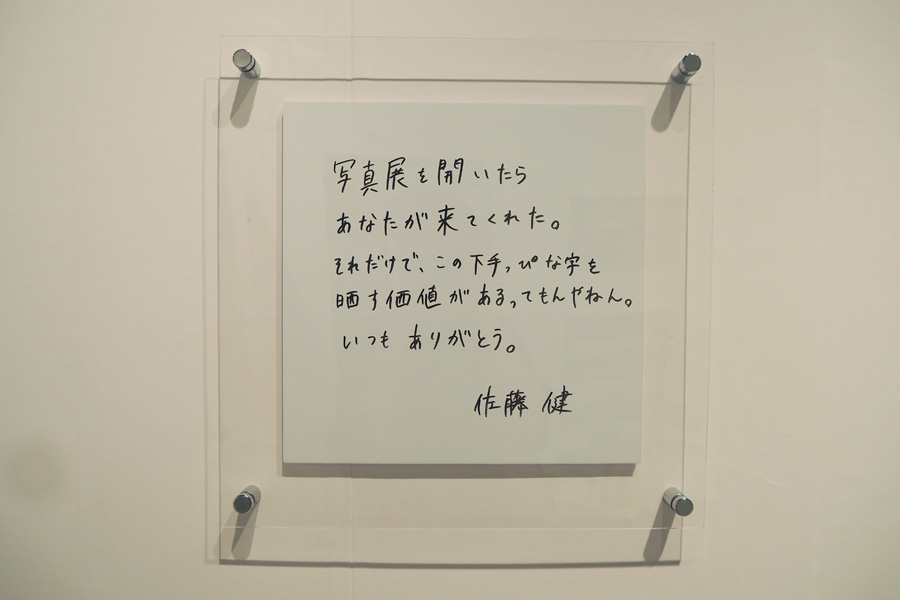 写真展を開いたら
あなたが来てくれた。
それだけで、この下手っぴな字を
晒す価値があるってもんやねん。
いつも ありがとう。
佐藤 健